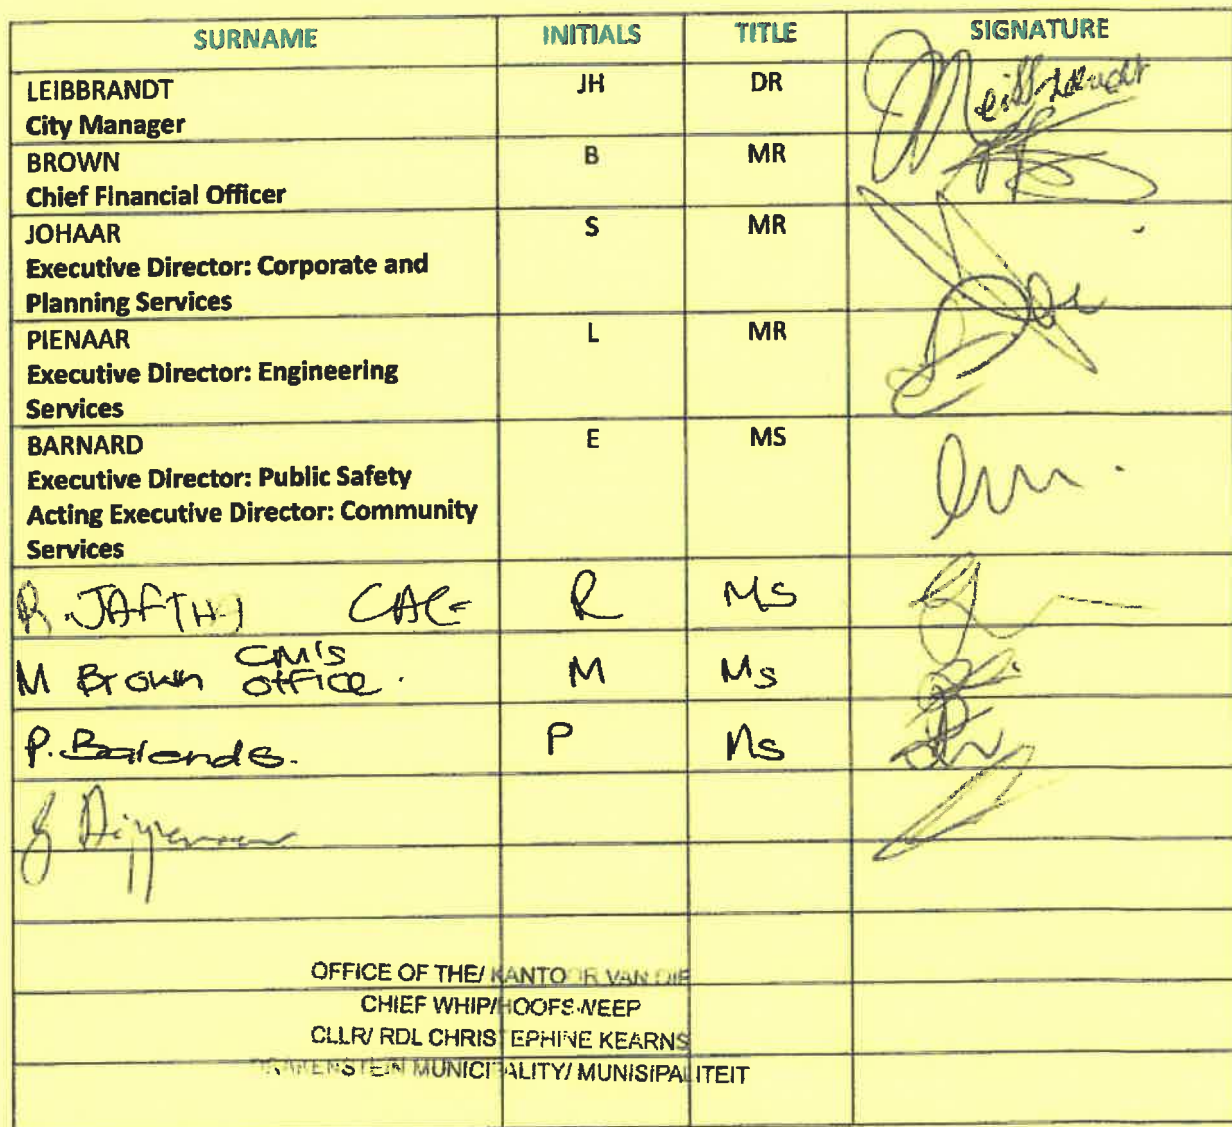 SURNAME INITIALS TITLE SIGNATURE
LEIBBRANDT JH DR
City Manager
BROWN B MR
Chief Financial Officer
JOHAAR S MR
Executive Director: Corporate and
Planning Services
PIENAAR L MR
Executive Director: Engineering
Services
BARNARD E MS
Executive Director: Public Safety
Acting Executive Director: Community
Services
R. R MS
M Brown CM's office. M Ms
P. P Ms
OFFICE OF THE/ KANTOOR VAN DIE
CHIEF WHIP/HOOFSWEEP
CLLR/ RDL CHRISTEPHINE KEARNS
DRAKENSTEIN MUNICIPALITY/ MUNISIPALITEIT